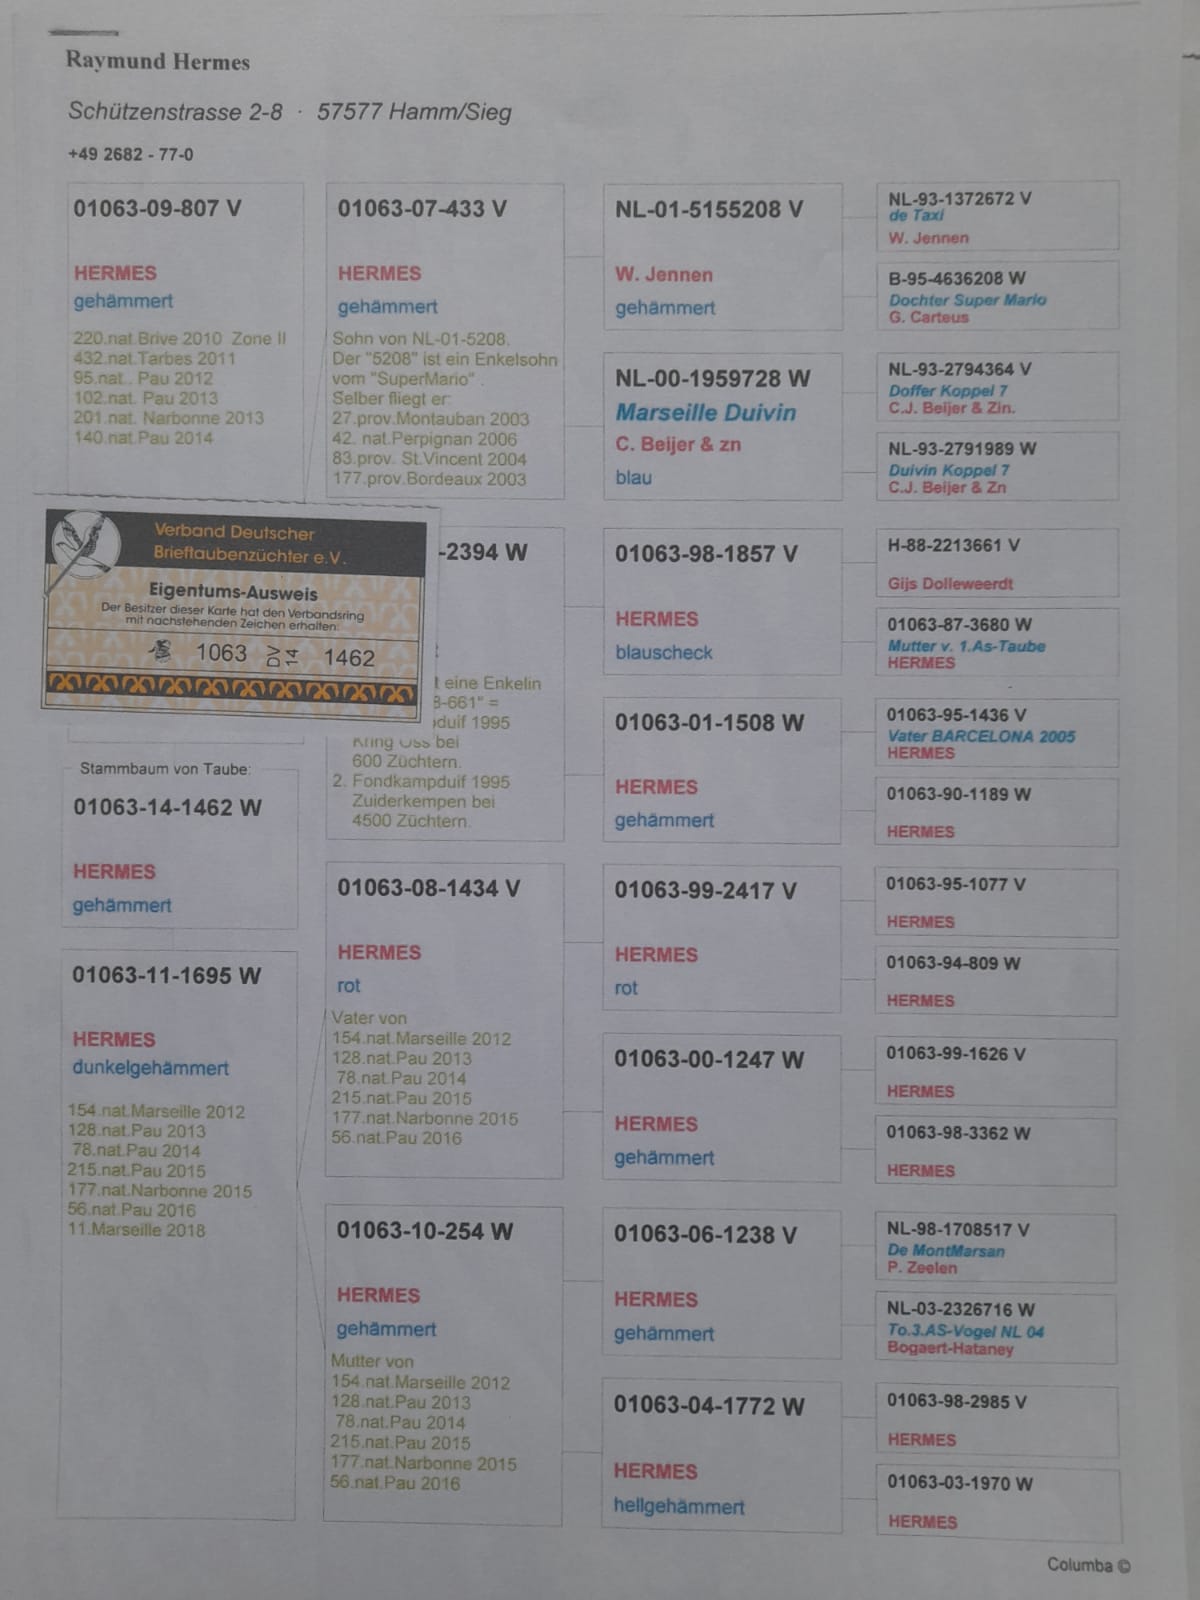 Raymund Hermes
Schützenstrasse 2-8 · 57577 Hamm/Sieg
+49 2682 - 77-0
01063-09-807 V
HERMES
gehämmert
220.nat.Brive 2010 Zone II
432.nat.Tarbes 2011
95.nat.. Pau 2012
102.nat. Pau 2013
201.nat. Narbonne 2013
140.nat.Pau 2014
Verband Deutscher
Brieftaubenzüchter e.V.
Eigentums-Ausweis
Der Besitzer dieser Karte hat den Verbandsring
mit nachstehenden Zeichen erhalten:
1063 DV 14 1462
Stammbaum von Taube:
01063-14-1462 W
HERMES
gehämmert
01063-11-1695 W
HERMES
dunkelgehämmert
154.nat.Marseille 2012
128.nat.Pau 2013
78.nat.Pau 2014
215.nat.Pau 2015
177.nat.Narbonne 2015
56.nat.Pau 2016
11.Marseille 2018
01063-07-433 V
HERMES
gehämmert
Sohn von NL-01-5208.
Der "5208" ist ein Enkelsohn
vom "SuperMario" .
Selber fliegt er:
27.prov.Montauban 2003
42. nat.Perpignan 2006
83.prov. St.Vincent 2004
177.prov.Bordeaux 2003
-2394 W
t eine Enkelin
8-661" =
duif 1995
Kring Oss bei
600 Züchtern.
2. Fondkampduif 1995
Zuiderkempen bei
4500 Züchtern.
01063-08-1434 V
HERMES
rot
Vater von
154.nat.Marseille 2012
128.nat.Pau 2013
78.nat.Pau 2014
215.nat.Pau 2015
177.nat.Narbonne 2015
56.nat.Pau 2016
01063-10-254 W
HERMES
gehämmert
Mutter von
154.nat.Marseille 2012
128.nat.Pau 2013
78.nat.Pau 2014
215.nat.Pau 2015
177.nat.Narbonne 2015
56.nat.Pau 2016
NL-01-5155208 V
W. Jennen
gehämmert
NL-00-1959728 W
Marseille Duivin
C. Beijer & zn
blau
01063-98-1857 V
HERMES
blauscheck
01063-01-1508 W
HERMES
gehämmert
01063-99-2417 V
HERMES
rot
01063-00-1247 W
HERMES
gehämmert
01063-06-1238 V
HERMES
gehämmert
01063-04-1772 W
HERMES
hellgehämmert
NL-93-1372672 V
de Taxi
W. Jennen
B-95-4636208 W
Dochter Super Mario
G. Carteus
NL-93-2794364 V
Doffer Koppel 7
C.J. Beijer & Zin.
NL-93-2791989 W
Duivin Koppel 7
C.J. Beijer & Zn
H-88-2213661 V
Gijs Dolleweerdt
01063-87-3680 W
Mutter v. 1.As-Taube
HERMES
01063-95-1436 V
Vater BARCELONA 2005
HERMES
01063-90-1189 W
HERMES
01063-95-1077 V
HERMES
01063-94-809 W
HERMES
01063-99-1626 V
HERMES
01063-98-3362 W
HERMES
NL-98-1708517 V
De MontMarsan
P. Zeelen
NL-03-2326716 W
To.3.AS-Vogel NL 04
Bogaert-Hataney
01063-98-2985 V
HERMES
01063-03-1970 W
HERMES
Columba ©